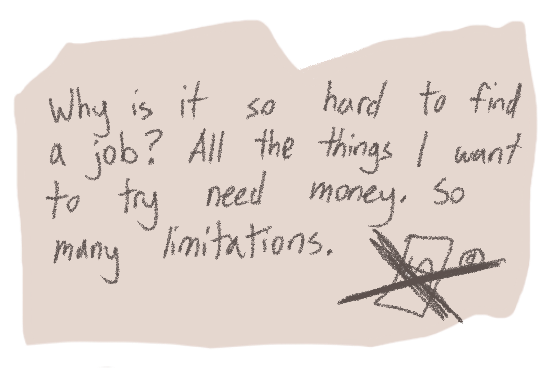 Why is it so hard to find
a job? All the things I want
to try need money. So
many limitations.